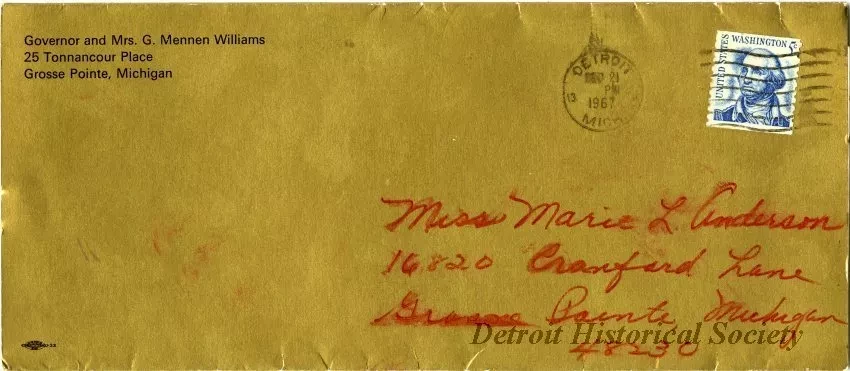 Governor and Mrs. G. Mennen Williams
25 Tonnancour Place
Grosse Pointe, Michigan
DETROIT
PM
13
1967
MICH
UNITED STATES
WASHINGTON 5c
Miss Marie L Anderson
16820 Cranford Lane
Grosse Pointe, Michigan
48230
Detroit Historical Society